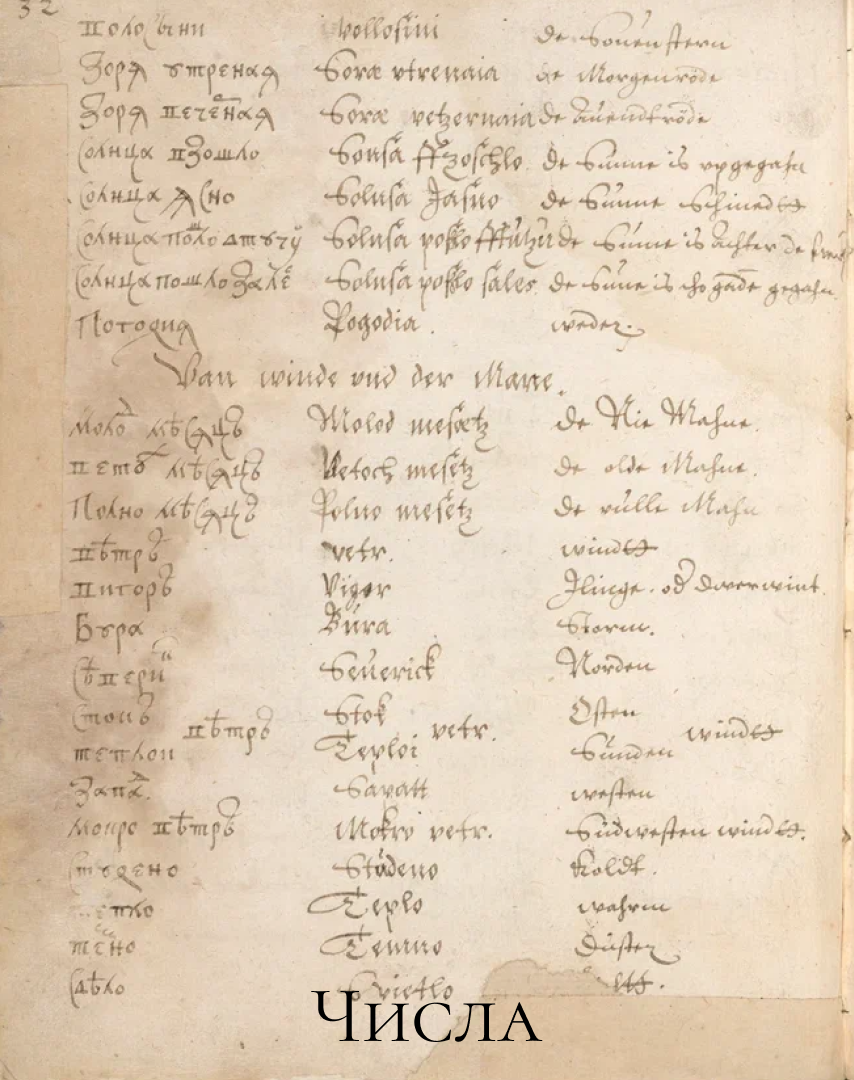 32
полоꙁычи vollosini de Souenstern
Зоря утреная Sora vtrenaia de Morgenröde
Зоря вечеⷩ҇ая Sora vetzernaia de Auendtröde
Солнца взошло Sonsa ffzoschlo de Sunne is vpgegahn
Солнца ясно Solnsa Jasno de Sunne Schinedtt
Солнца поⷲло втучу Solnsa posslo ffthutzu de Sunne is Achter de
Солнца пошло залѣ Solnsa posslo sales de Sune is tho gade gegahn
Погодия Pogodia. weder.
Van winde vnd der Mane.
Молоⷣ мѣсяцъ Molod mesetz de Nie Mahne.
ветоⷯ мѣсяцъ Vetoch mesetz de olde Mahne.
Полно мѣсяцъ Polno mesetz de vulle Mahn
вѣтръ vetr. windtt
вигоръ Vigor Ilinge. od dwerwint.
Бура Bura Storm.
Сѣвери Seuerick Norden
Стокъ Stok Osten
вѣтръ vetr. windtt
теплои Teploi Sunden
Запаⷣ. Sapatt westen
мокро вѣтръ Mokro vetr. Sudwesten windtt.
Студено Studeno Koldt.
тепло Teplo wahrm
темно Temno Duster
Свѣло Svietlo
Числа